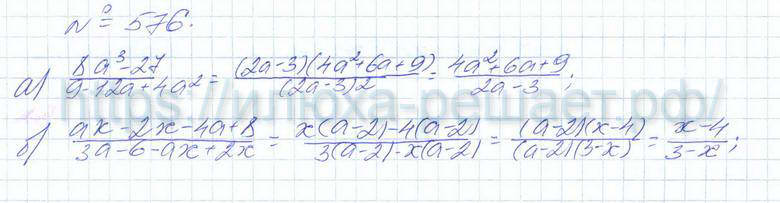 № 576.
а) (8a³-27)/(9-12a+4a²) = ((2a-3)(4a²+6a+9))/((2a-3)2) = (4a²+6a+9)/(2a-3);
https://илюха-решает.рф/
б) (ax-2x-4a+8)/(3a-6-ax+2x) = (x(a-2)-4(a-2))/(3(a-2)-x(a-2)) = ((a-2)(x-4))/((a-2)(3-x)) = (x-4)/(3-x);